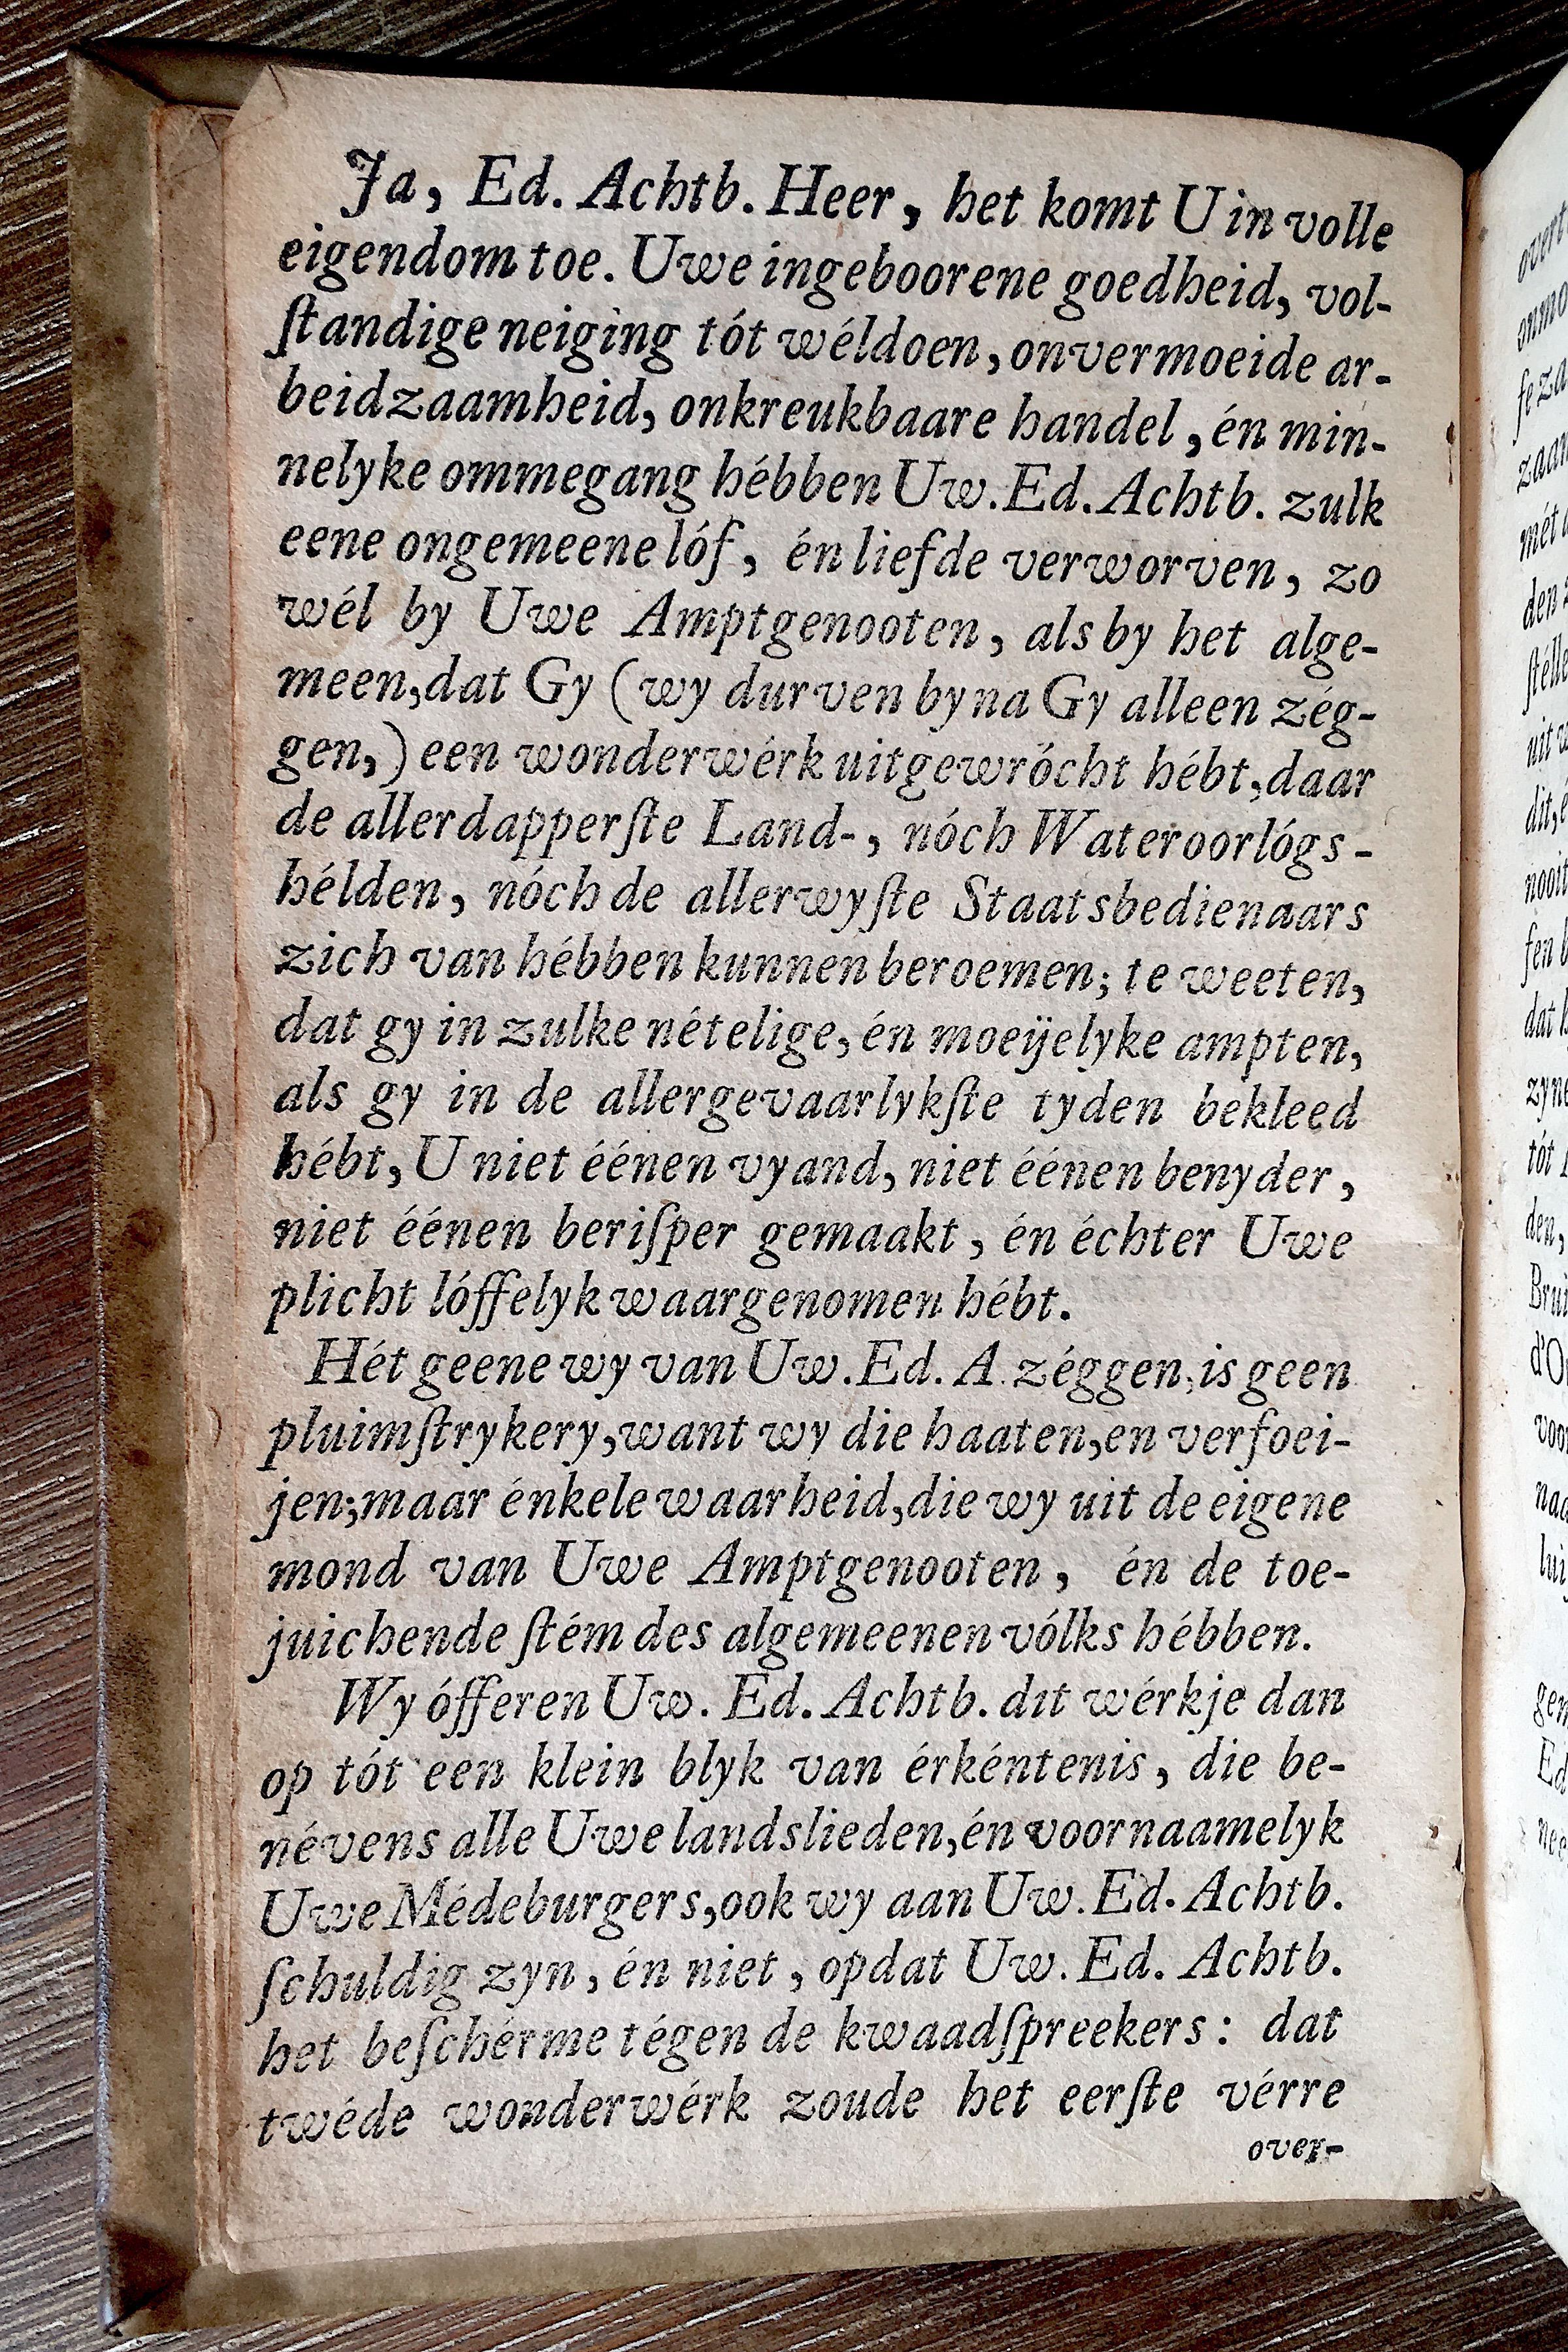 Ja, Ed. Achtb. Heer, het komt U in volle
eigendom toe. Uwe ingeboorene goedheid, vol-
ſtandige neiging tót wéldoen, onvermoeide ar-
beidzaamheid, onkreukbaare handel, én min-
nelyke ommegang hébben Uw. Ed. Achtb. zulk
eene ongemeene lóf, én liefde verworven, zo
wél by Uwe Amptgenooten, als by het alge-
meen, dat Gy (wy durven byna Gy alleen zég-
gen,) een wonderwérk uitgewrócht hébt, daar
de allerdapperſte Land-, nóch Wateroorlógs-
hélden, nóch de allerwyſte Staatsbedienaars
zich van hébben kunnen beroemen; te weeten,
dat gy in zulke nételige, én moeijelyke ampten,
als gy in de allergevaarlykſte tyden bekleed
hébt, U niet éénen vyand, niet éénen benyder,
niet éénen beriſper gemaakt, én échter Uwe
plicht lóffelyk waargenomen hébt.
Hét geene wy van Uw. Ed. A. zéggen, is geen
pluimſtrykery, want wy die haaten, en verfoei-
jen; maar énkele waarheid, die wy uit de eigene
mond van Uwe Amptgenooten, én de toe-
juichende ſtém des algemeenen vólks hébben.
Wy ófferen Uw. Ed. Achtb. dit wérkje dan
op tót een klein blyk van érkéntenis, die be-
névens alle Uwe landslieden, én voornaamelyk
Uwe Médeburgers, ook wy aan Uw. Ed. Achtb.
ſchuldig zyn, én niet, opdat Uw. Ed. Achtb.
het beſchérme tégen de kwaadſpreekers: dat
twéde wonderwérk zoude het eerſte vérre
over-